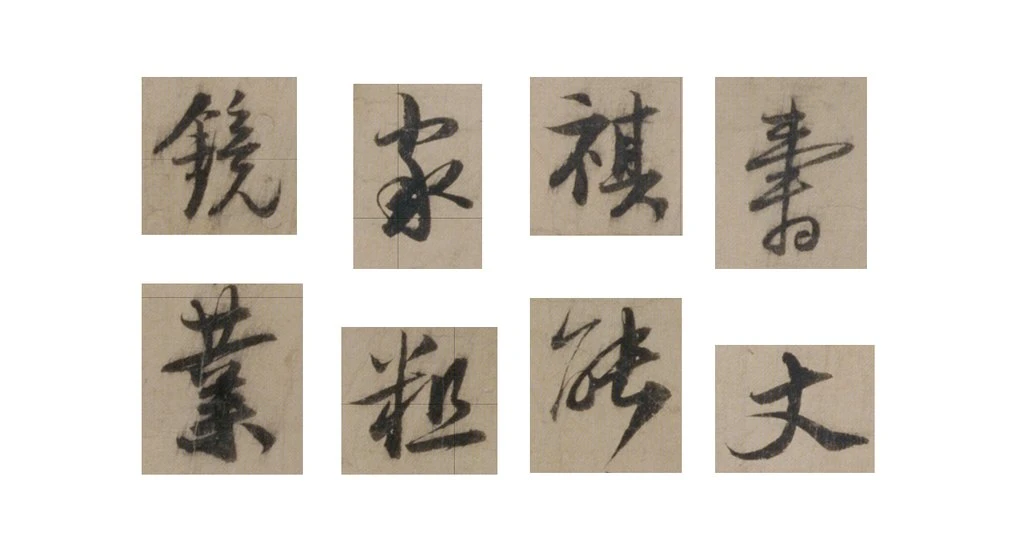 鏡家祺書
業粗能丈